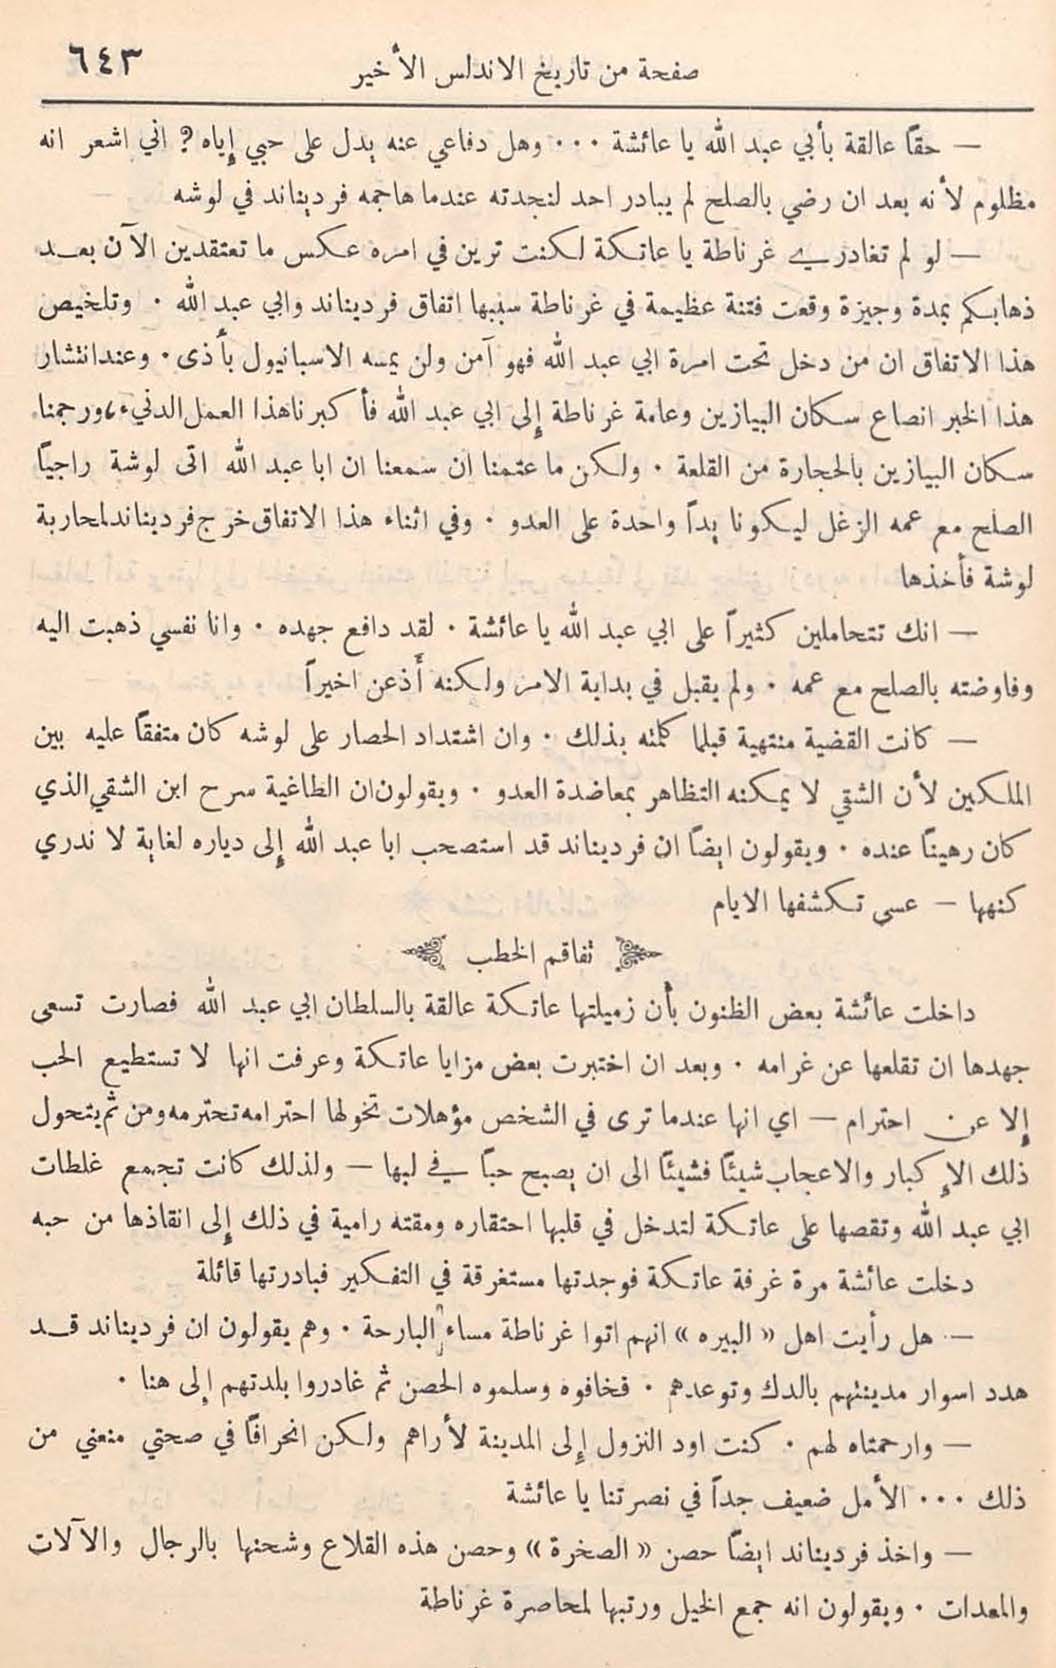 صفحة من تاريخ الاندلس الأخير ٦٤٣
— حقاً عالقة بأبي عبد الله يا عائشة ... وهل دفاعي عنه يدل على حبي إياه ? اني اشعر انه
مظلوم لأنه بعد ان رضي بالصلح لم يبادر احد لنجدته عندما هاجمه فرديناند في لوشه
— لو لم تغادري غرناطة يا عاتكة لكنت ترين في امره عكس ما تعتقدين الآن بعد
ذهابكم بمدة وجيزة وقعت فتنة عظيمة في غرناطة سببها اتفاق فرديناند وابي عبد الله . وتلخيص
هذا الاتفاق ان من دخل تحت امرة ابي عبد الله فهو آمن ولن يمسه الاسبانيول بأذى . وعند انتشار
هذا الخبر انصاع سكان البيازين وعامة غرناطة إلى ابي عبد الله فأكبرنا هذا العمل الدنيء، ورجمنا
سكان البيازين بالحجارة من القلعة . ولكن ما عتمنا ان سمعنا ان ابا عبد الله اتى لوشة راجياً
الصلح مع عمه الزغل ليكونا يداً واحدة على العدو . وفي اثناء هذا الاتفاق خرج فرديناند لمحاربة
لوشة فأخذها
— انك تتحاملين كثيراً على ابي عبد الله يا عائشة . لقد دافع جهده . وانا نفسي ذهبت اليه
وفاوضته بالصلح مع عمه . ولم يقبل في بداية الامر ولكنه أَذعن اخيراً
— كانت القضية منتهية قبلما كلمته بذلك . وان اشتداد الحصار على لوشه كان متفقاً عليه بين
الملكين لأن الشقي لا يمكنه التظاهر بمعاضدة العدو . ويقولون ان الطاغية سرح ابن الشقي الذي
كان رهيناً عنده . ويقولون ايضاً ان فرديناند قد استصحب ابا عبد الله إلى دياره لغاية لا ندري
كنهها — عسى تكشفها الايام
تفاقم الخطب
داخلت عائشة بعض الظنون بأن زميلتها عاتكة عالقة بالسلطان ابي عبد الله فصارت تسعى
جهدها ان تقلعها عن غرامه . وبعد ان اختبرت بعض مزايا عاتكة وعرفت انها لا تستطيع الحب
إلا عن احترام — اي انها عندما ترى في الشخص مؤهلات تخولها احترامه تحترمه ومن ثم يتحول
ذلك الإكبار والاعجاب شيئاً فشيئاً الى ان يصبح حباً في لبها — ولذلك كانت تجمع غلطات
ابي عبد الله وتقصها على عاتكة لتدخل في قلبها احتقاره ومقته رامية في ذلك إلى انقاذها من حبه
دخلت عائشة مرة غرفة عاتكة فوجدتها مستغرقة في التفكير فبادرتها قائلة
— هل رأيت اهل « البيره » انهم اتوا غرناطة مساء البارحة . وهم يقولون ان فرديناند قد
هدد اسوار مدينتهم بالدك وتوعدهم . فخافوه وسلموه الحصن ثم غادروا بلدتهم إلى هنا .
— وارحمتاه لهم . كنت اود النزول إلى المدينة لأراهم ولكن انحرافاً في صحتي منعني من
ذلك ... الأمل ضعيف جداً في نصرتنا يا عائشة
— واخذ فرديناند ايضاً حصن « الصخرة » وحصن هذه القلاع وشحنها بالرجال والآلات
والمعدات . ويقولون انه جمع الخيل ورتبها لمحاصرة غرناطة